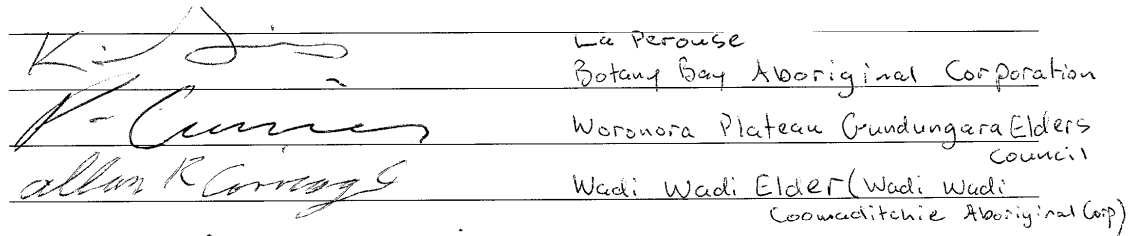 La Perouse
Botany Bay Aboriginal Corporation
Woronora Plateau Gundungara Elders
Council
allan R Carriage
Wadi Wadi Elder (Wadi Wadi
Coomaditchie Aboriginal Corp)